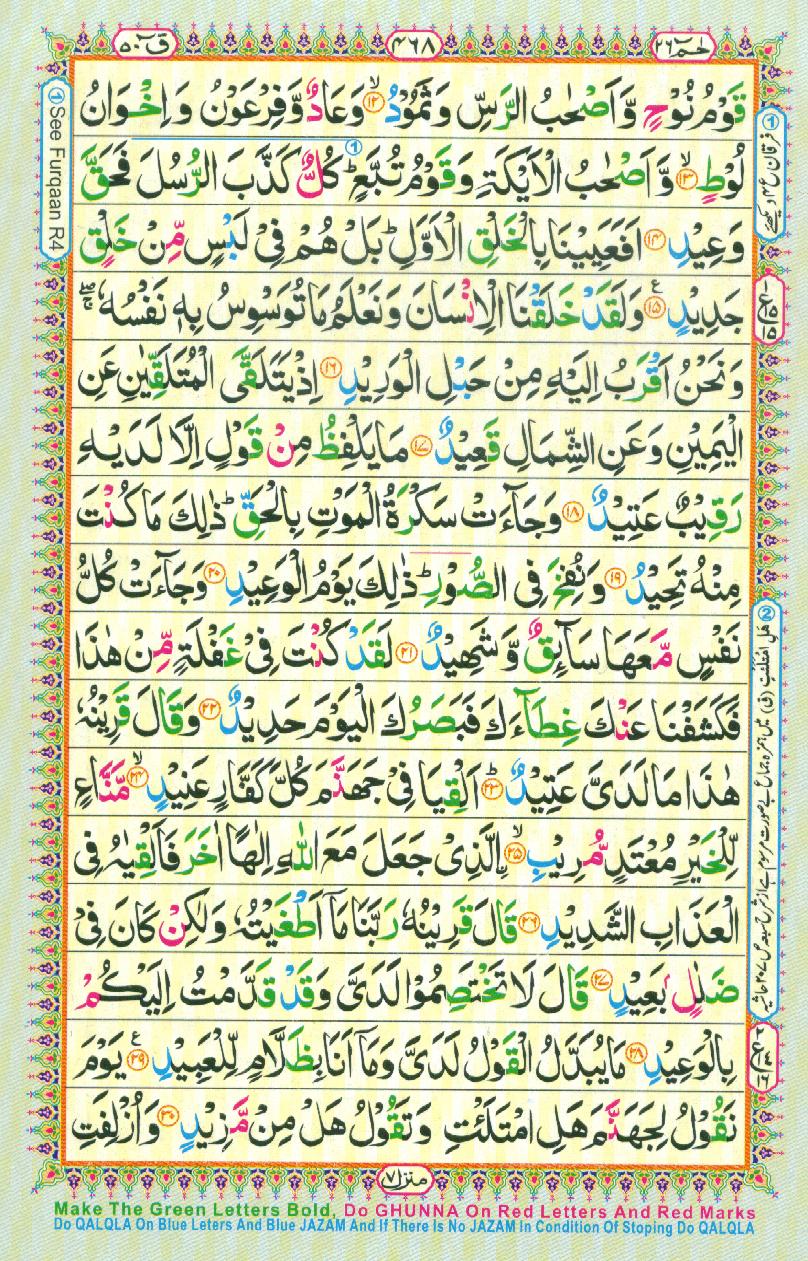 حٰمٓ ٢٦
٤٦٨
قٓ ٥٠
قَوْمُ نُوْحٍ وَّاَصْحٰبُ الرَّسِّ وَثَمُوْدُ ۙ﴿١٢﴾ وَعَادٌ وَّفِرْعَوْنُ وَاِخْوَانُ
لُوْطٍ ۙ﴿١٣﴾ وَّاَصْحٰبُ الْاَيْكَةِ وَقَوْمُ تُبَّعٍ ؕ① كُلٌّ كَذَّبَ الرُّسُلَ فَحَقَّ
وَعِيْدِ ﴿١٤﴾ اَفَعَيِيْنَا بِالْخَلْقِ الْاَوَّلِ ؕ بَلْ هُمْ فِيْ لَبْسٍ مِّنْ خَلْقٍ
جَدِيْدٍ ﴿١٥﴾ۧ وَلَقَدْ خَلَقْنَا الْاِنْسَانَ وَنَعْلَمُ مَا تُوَسْوِسُ بِهٖ نَفْسُهٗ ۖۚ
وَنَحْنُ اَقْرَبُ اِلَيْهِ مِنْ حَبْلِ الْوَرِيْدِ ﴿١٦﴾ اِذْ يَتَلَقَّى الْمُتَلَقِّيٰنِ عَنِ
الْيَمِيْنِ وَعَنِ الشِّمَالِ قَعِيْدٌ ﴿١٧﴾ مَا يَلْفِظُ مِنْ قَوْلٍ اِلَّا لَدَيْهِ
رَقِيْبٌ عَتِيْدٌ ﴿١٨﴾ وَجَآءَتْ سَكْرَةُ الْمَوْتِ بِالْحَقِّ ؕ ذٰلِكَ مَا كُنْتَ
مِنْهُ تَحِيْدُ ﴿١٩﴾ وَنُفِخَ فِى الصُّوْرِ ؕ ذٰلِكَ يَوْمُ الْوَعِيْدِ ﴿٢٠﴾ وَجَآءَتْ كُلُّ
نَفْسٍ مَّعَهَا سَآئِقٌ وَّشَهِيْدٌ ﴿٢١﴾ لَقَدْ كُنْتَ فِيْ غَفْلَةٍ مِّنْ هٰذَا
فَكَشَفْنَا عَنْكَ غِطَآءَكَ فَبَصَرُكَ الْيَوْمَ حَدِيْدٌ ﴿٢٢﴾ وَقَالَ قَرِيْنُهٗ
هٰذَا مَا لَدَىَّ عَتِيْدٌ ؕ﴿٢٣﴾ اَلْقِيَا فِيْ جَهَنَّمَ كُلَّ كَفَّارٍ عَنِيْدٍ ۙ﴿٢٤﴾ مَّنَّاعٍ
لِّلْخَيْرِ مُعْتَدٍ مُّرِيْبِ ۙ﴿٢٥﴾ ۨالَّذِيْ جَعَلَ مَعَ اللّٰهِ اِلٰهًا اٰخَرَ فَاَلْقِيٰهُ فِى
الْعَذَابِ الشَّدِيْدِ ﴿٢٦﴾ قَالَ قَرِيْنُهٗ رَبَّنَا مَآ اَطْغَيْتُهٗ وَلٰكِنْ كَانَ فِيْ
ضَلٰلٍۢ بَعِيْدٍ ﴿٢٧﴾ قَالَ لَا تَخْتَصِمُوْا لَدَىَّ وَقَدْ قَدَّمْتُ اِلَيْكُمْ
بِالْوَعِيْدِ ﴿٢٨﴾ مَا يُبَدَّلُ الْقَوْلُ لَدَىَّ وَمَآ اَنَا بِظَلَّامٍ لِّلْعَبِيْدِ ﴿٢٩﴾ۧ يَوْمَ
نَقُوْلُ لِجَهَنَّمَ هَلِ امْتَلَئْتِ وَتَقُوْلُ هَلْ مِنْ مَّزِيْدٍ ﴿٣٠﴾ وَاُزْلِفَتِ
① See Furqaan R4
منزل ٧
Make The Green Letters Bold, Do GHUNNA On Red Letters And Red Marks
Do QALQLA On Blue Leters And Blue JAZAM And If There Is No JAZAM In Condition Of Stoping Do QALQLA